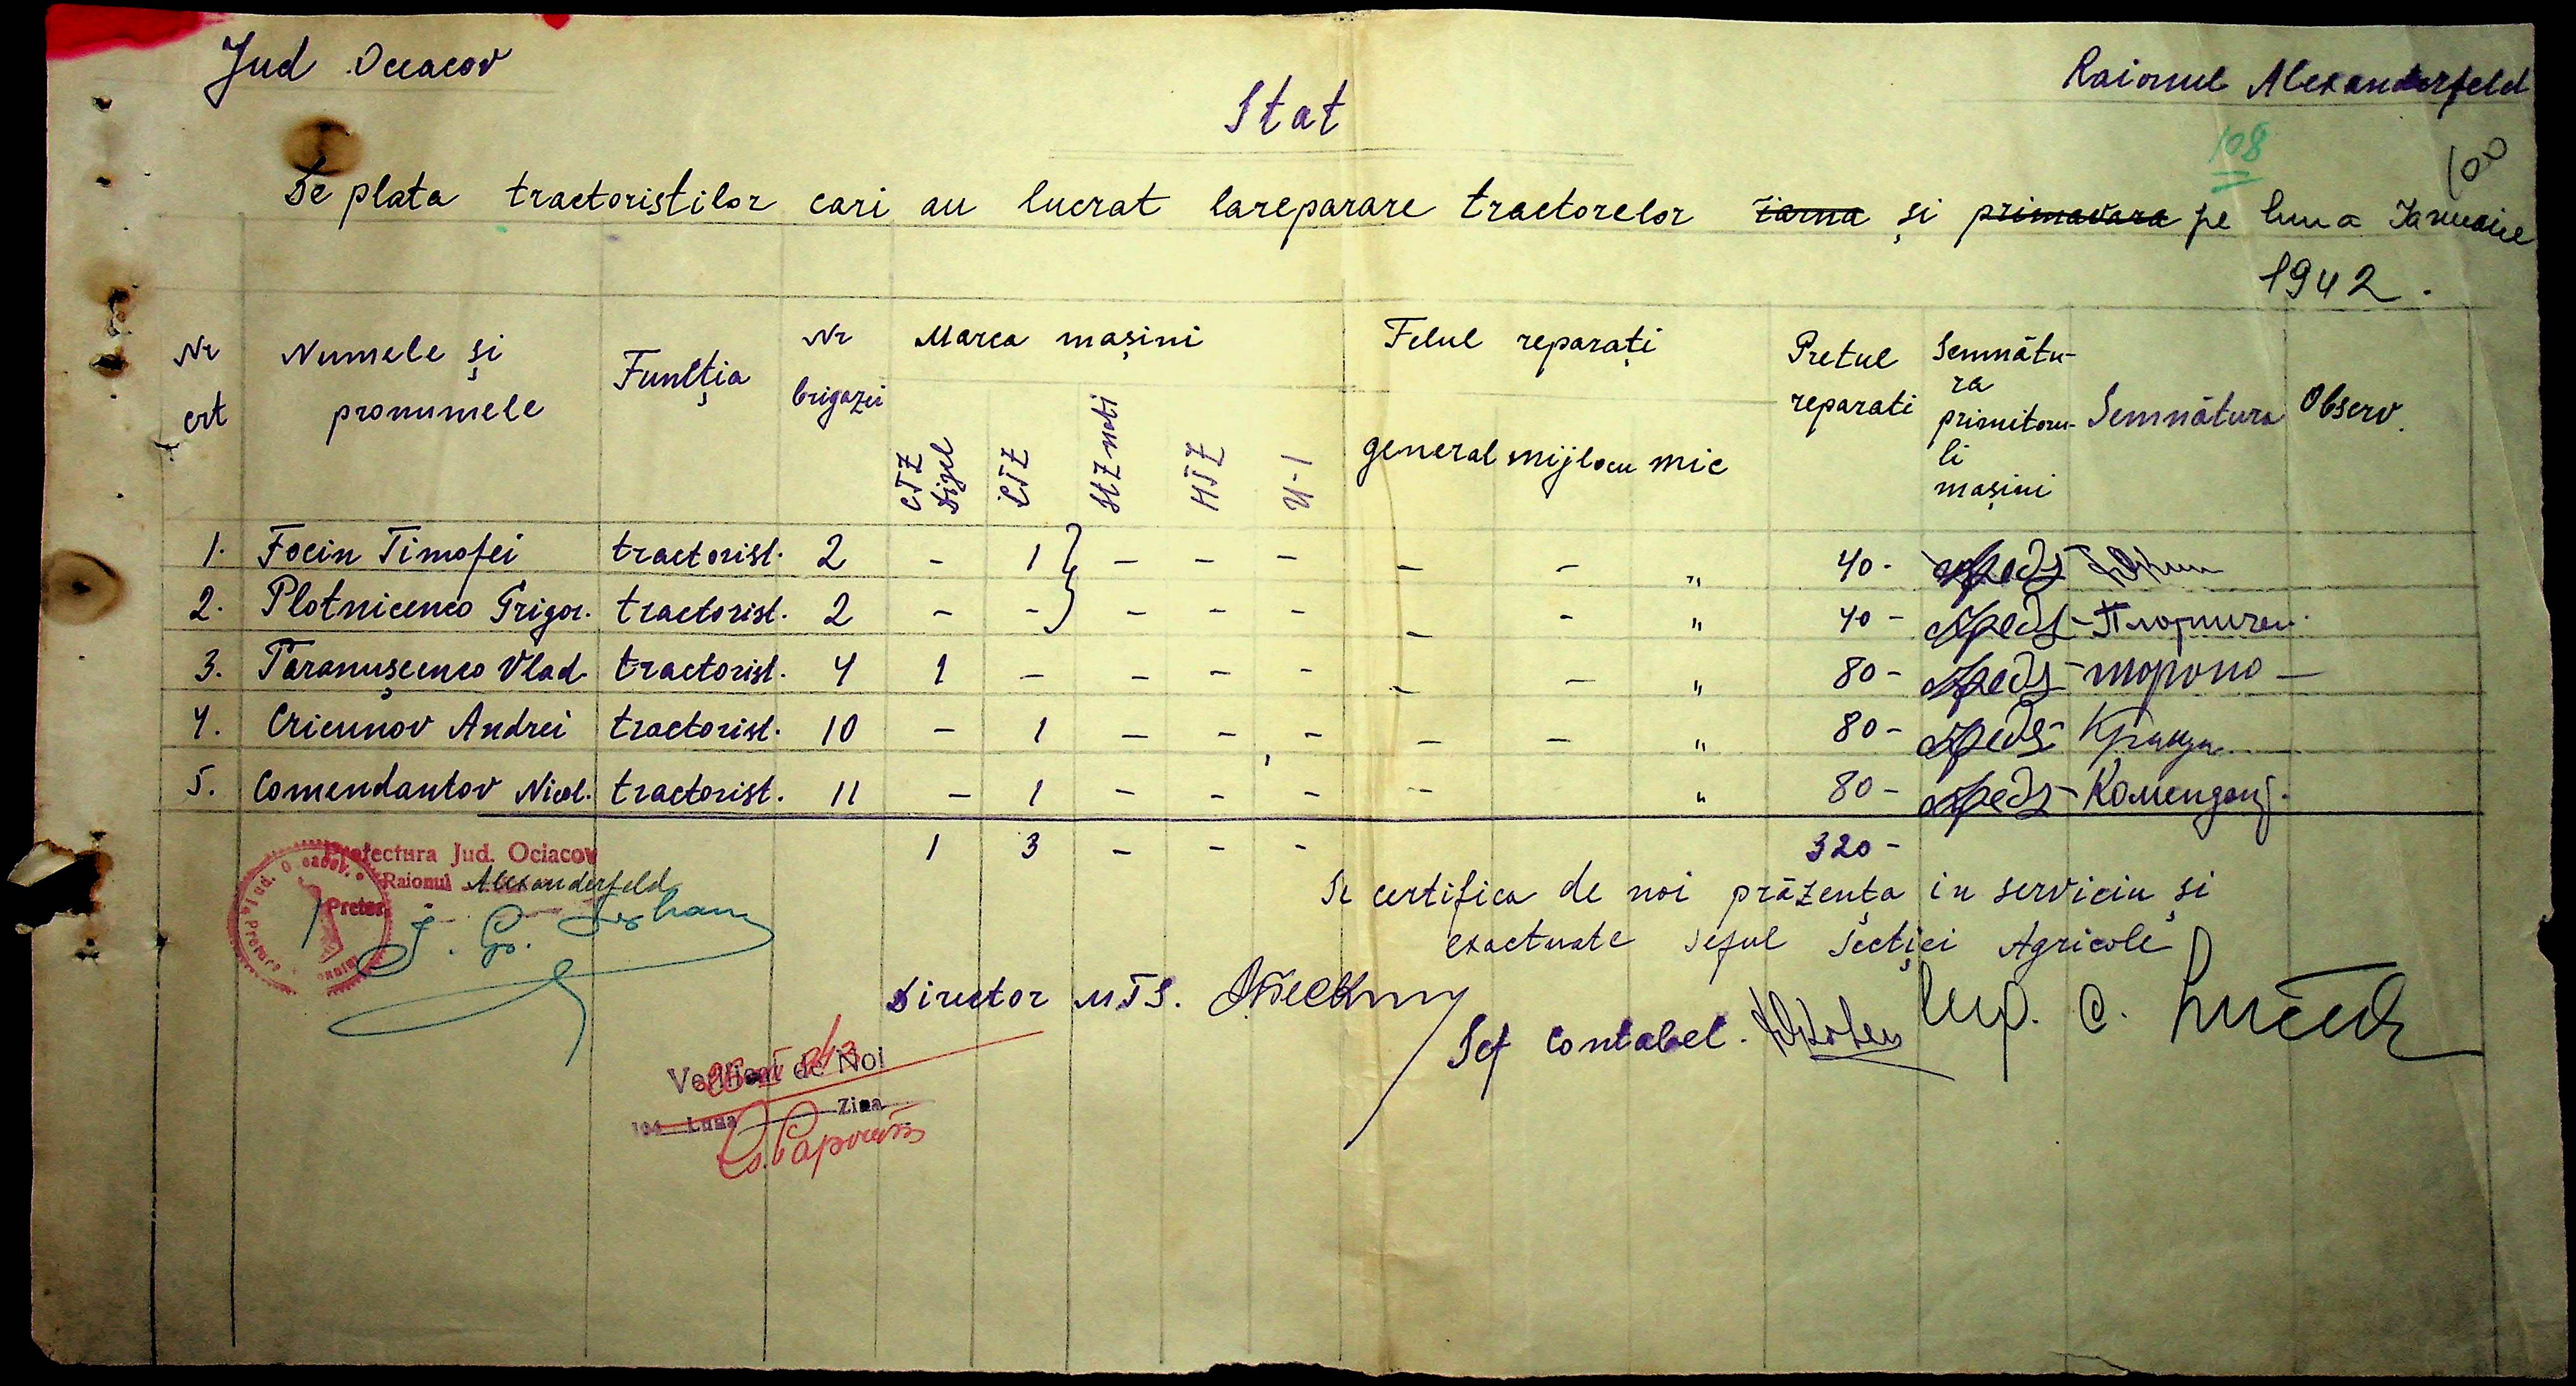 Jud Ociacov
Raionul Alexanderfeld
Stat
108
100
De plata tractoriștilor cari au lucrat lareparare tractorelor iarna și primavara pe luna Ianuarie
1942.
Nr crt
Numele și pronumele
Funcția
Nr brigazei
Marca mașini
CTZ Dizel
CTZ
StZ nati
HTZ
U-1
Felul reparați
general mijlocu mic
Pretul reparati
Semnătu-
ra
primitoru-
li
mașini
Semnătura
Observ.
1. Focin Timofei tractorist. 2 - 1 - - - - - " 40-
2. Plotnicenco Grigor. tractorist. 2 - - - - - - - " 40-
3. Taranușcenco Vlad. tractorist. 4 1 - - - - - - " 80-
4. Criciunov Andrei tractorist. 10 - 1 - - - - - " 80-
5. Comendantov Nicol. tractorist. 11 - 1 - - - - " 80- Комендант.
1 3 - - - 320-
Prefectura Jud. Ociacov
Raionul Alexanderfeld
Pretor
Se certifica de noi prăzența in serviciu și
exactuate Seful Secției Agricole
Director MTS.
Sef Contabel.
Verificat de Noi
194 Luna Ziua